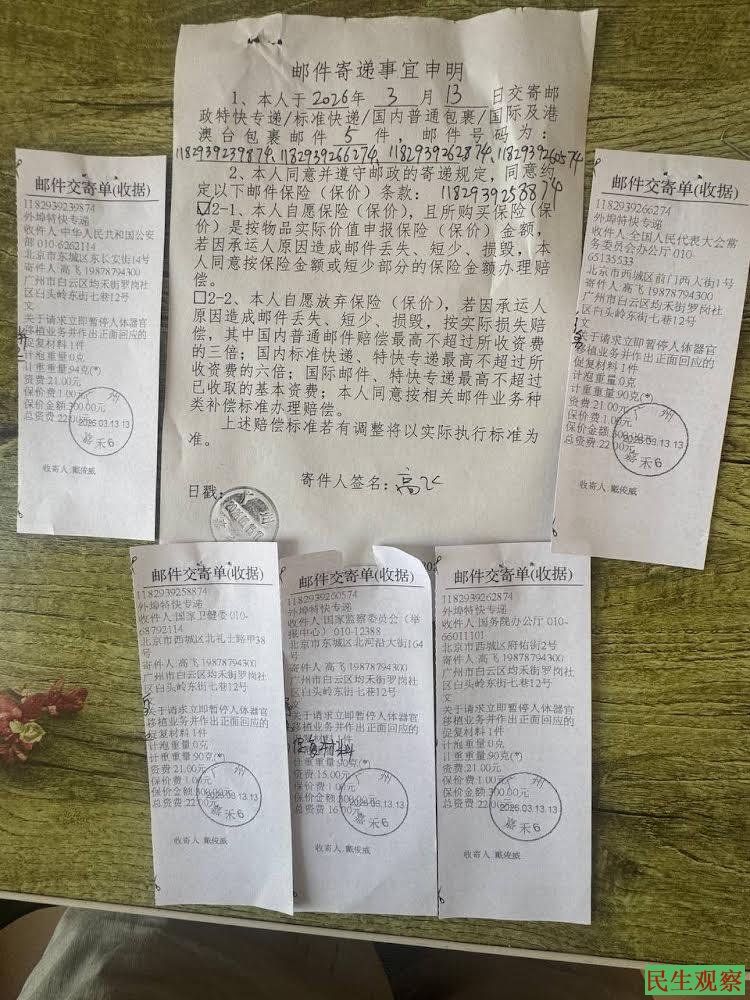 邮件寄递事宜申明
1、本人于2026年 3 月 13 日交寄邮
政特快专递/标准快递/国内普通包裹/国际及港
澳台包裹邮件 5 件，邮件号码为：
1182939239874、1182939266274、1182939262874、1182939260574
2、本人同意并遵守邮政的寄递规定，同意约
定以下邮件保险（保价）条款：1182939258874
☑2-1、本人自愿保险（保价），且所购买保险（保
价）是按物品实际价值申报保险（保价）金额，
若因承运人原因造成邮件丢失、短少、损毁，本
人同意按保险金额或短少部分的保险金额办理赔
偿。
□2-2、本人自愿放弃保险（保价），若因承运人
原因造成邮件丢失、短少、损毁，按实际损失赔
偿，其中国内普通邮件赔偿最高不超过所收资费
的三倍；国内标准快递、特快专递最高不超过所
收资费的六倍；国际邮件、特快专递最高不超过
已收取的基本资费；本人同意按相关邮件业务种
类补偿标准办理赔偿。
上述赔偿标准若有调整将以实际执行标准为
准。
寄件人签名：高飞
日戳：
邮件交寄单(收据)
1182939239874
外埠特快专递
收件人:中华人民共和国公安
部 010-6262114
北京市东城区东长安街14号
寄件人:高飞 19878794300
广州市白云区均禾街罗岗社
区白头岭东街七巷12号
文
关于请求立即暂停人体器官
移植业务并作出正面回应的
促复材料 1件
计泡重量:0克
计重重量:94克(*)
资费:21.00元
保价费:1.00元
保价金额:300.00元
总资费:22.00元
广州
2026.03.13.13
嘉禾6
收寄人:戴俊威
邮件交寄单(收据)
1182939266274
外埠特快专递
收件人:全国人民代表大会常
务委员会办公厅 010-
65135533
北京市西城区前门西大街1号
寄件人:高飞 19878794300
广州市白云区均禾街罗岗社
区白头岭东街七巷12号
文
关于请求立即暂停人体器官
移植业务并作出正面回应的
促复材料 1件
计泡重量:0克
计重重量:90克(*)
资费:21.00元
保价费:1.00元
保价金额:300.00元
总资费:22.00元
广州
2026.03.13.13
嘉禾6
收寄人:戴俊威
邮件交寄单(收据)
1182939258874
外埠特快专递
收件人:国家卫健委 010-
68792114
北京市西城区北礼士路甲38
号
寄件人:高飞 19878794300
广州市白云区均禾街罗岗社
区白头岭东街七巷12号
文
关于请求立即暂停人体器官
移植业务并作出正面回应的
促复材料 1件
计泡重量:0克
计重重量:90克(*)
资费:21.00元
保价费:1.00元
保价金额:300.00元
总资费:22.00元
广州
2026.03.13.13
嘉禾6
收寄人:戴俊威
邮件交寄单(收据)
1182939260574
外埠特快专递
收件人:国家监察委员会（举
报中心） 010-12388
北京市东城区北河沿大街164
号
寄件人:高飞 19878794300
广州市白云区均禾街罗岗社
区白头岭东街七巷12号
文
关于请求立即暂停人体器官
移植业务并作出正面回应的
促复材料
计重重量:90克(*)
资费:15.00元
保价费:1.00元
保价金额:300.00元
总资费:16.00元
广州
2026.03.13.13
嘉禾6
收寄人:戴俊威
邮件交寄单(收据)
1182939262874
外埠特快专递
收件人:国务院办公厅 010-
66011101
北京市西城区府佑街2号
寄件人:高飞 19878794300
广州市白云区均禾街罗岗社
区白头岭东街七巷12号
文
关于请求立即暂停人体器官
移植业务并作出正面回应的
促复材料 1件
计泡重量:0克
计重重量:90克(*)
资费:21.00元
保价费:1.00元
保价金额:300.00元
总资费:22.00元
广州
2026.03.13.13
嘉禾6
收寄人:戴俊威
民生观察